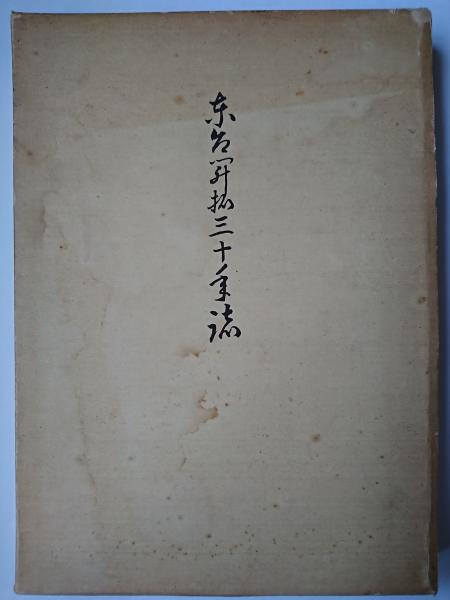 东台開拓三十年誌